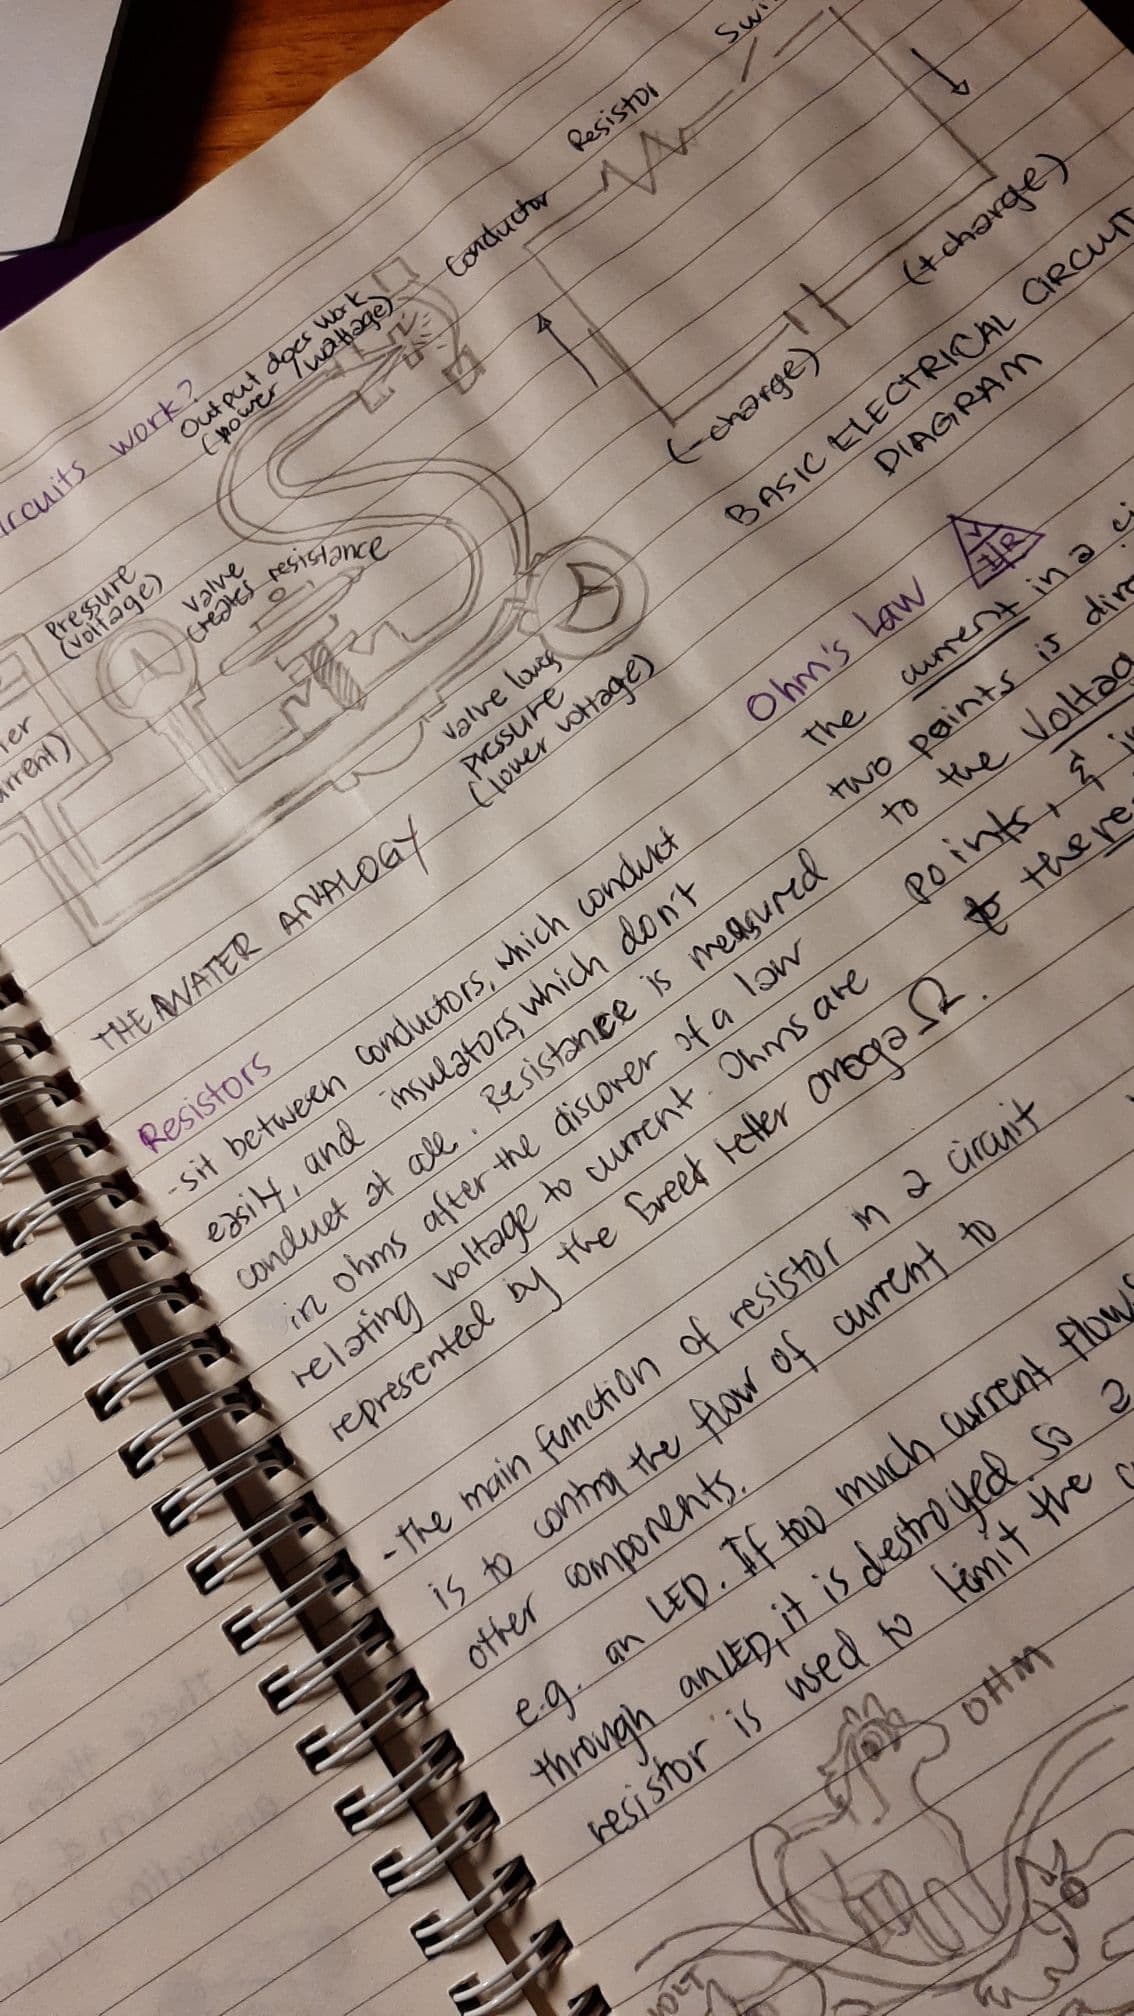 circuits work?
Output does work
(power / wattage)
Pressure
(voltage)
valve
creates resistance
valve lowers
pressure
(lower voltage)
THE WATER ANALOGY
Conductor
Resistor
(-charge)
(+charge)
BASIC ELECTRICAL CIRCUIT
DIAGRAM
Ohm's Law
V
I R
The current in a
two points is
to the
points, &
to the
Resistors
- sit between conductors, which conduct
easily, and insulators, which don't
conduct at all. Resistance is measured
in ohms after the discover of a law
relating voltage to current. Ohms are
represented by the Greek letter omega Ω.
- The main function of resistor in a circuit
is to control the flow of current to
other components.
e.g. an LED. If too much current flows
through an LED, it is destroyed. So a
resistor is used to limit the
OHM
VOLT